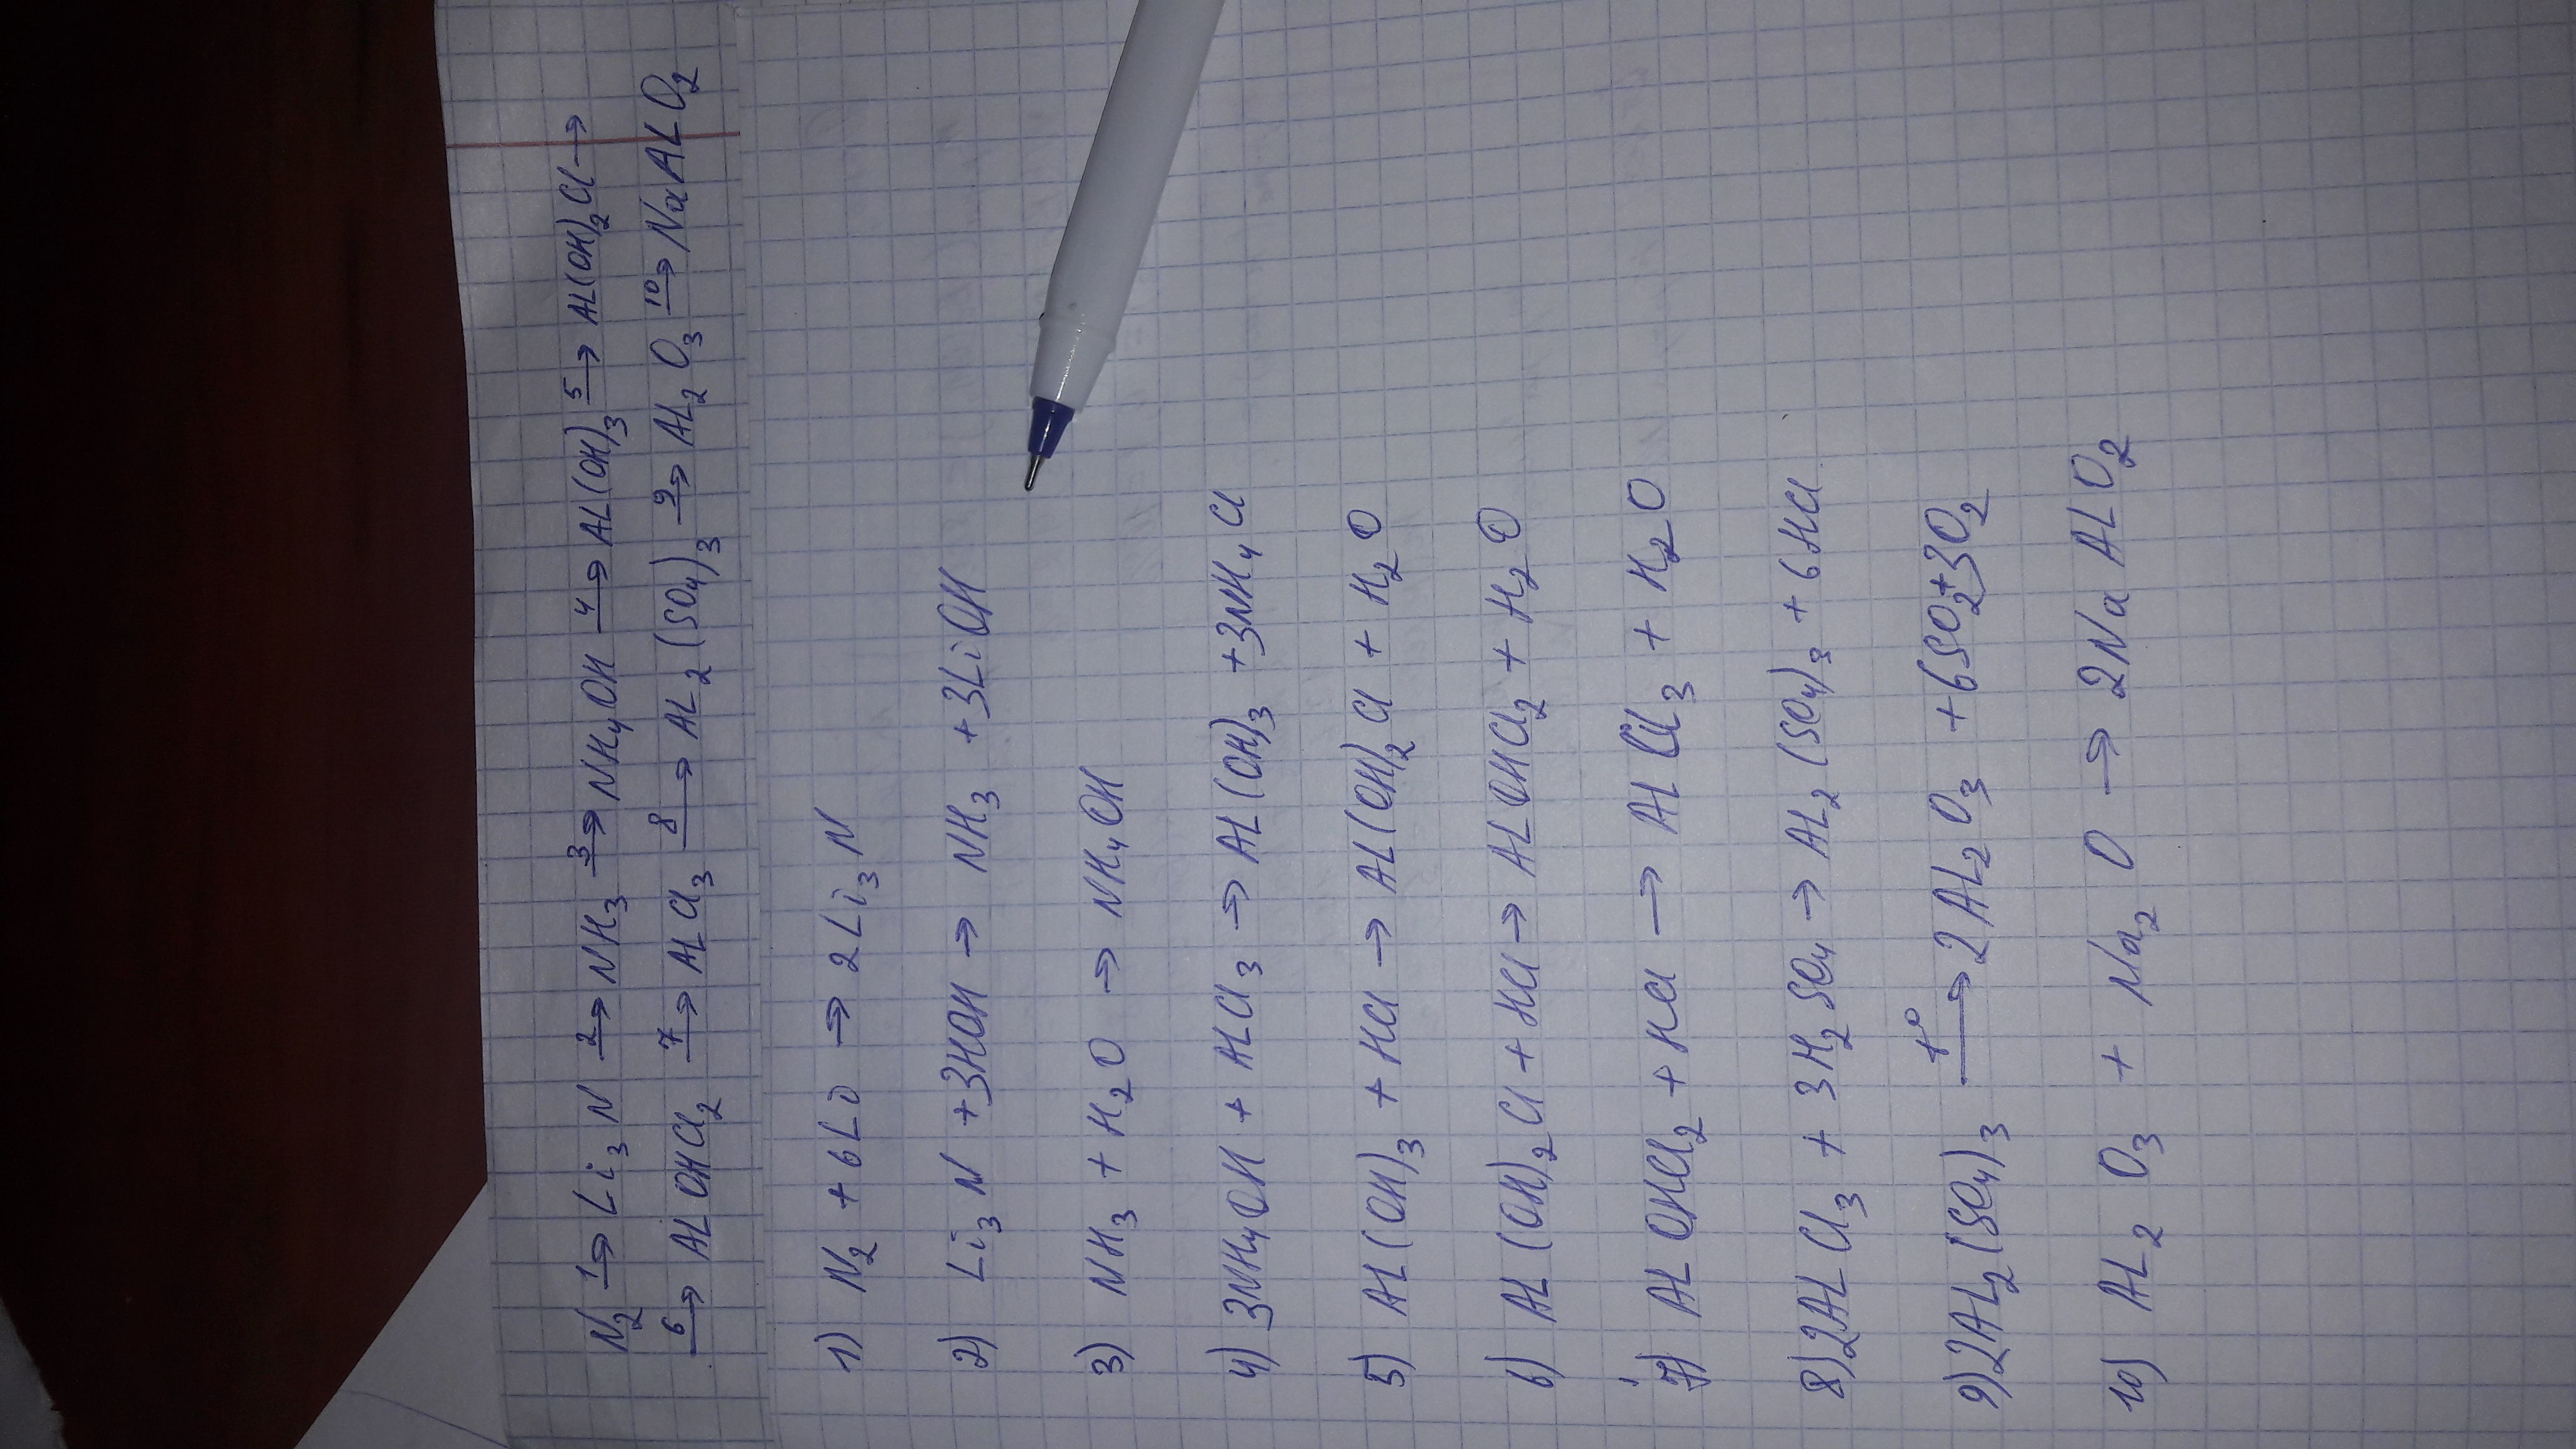 N₂ 1→ Li₃N 2→ NH₃ 3→ NH₄OH 4→ AL(OH)₃ 5→ AL(OH)₂Cl →
6→ ALOHCl₂ 7→ ALCl₃ 8→ AL₂(SO₄)₃ 9→ AL₂O₃ 10→ NaALO₂
1) N₂ + 6Li → 2Li₃N
2) Li₃N + 3HOH → NH₃ + 3LiOH
3) NH₃ + H₂O → NH₄OH
4) 3NH₄OH + ALCl₃ → AL(OH)₃ + 3NH₄Cl
5) AL(OH)₃ + HCl → AL(OH)₂Cl + H₂O
6) AL(OH)₂Cl + HCl → ALOHCl₂ + H₂O
7) ALOHCl₂ + HCl → ALCl₃ + H₂O
8) 2ALCl₃ + 3H₂SO₄ → AL₂(SO₄)₃ + 6HCl
9) 2AL₂(SO₄)₃ t°→ 2AL₂O₃ + 6SO₂ + 3O₂
10) AL₂O₃ + Na₂O → 2NaALO₂